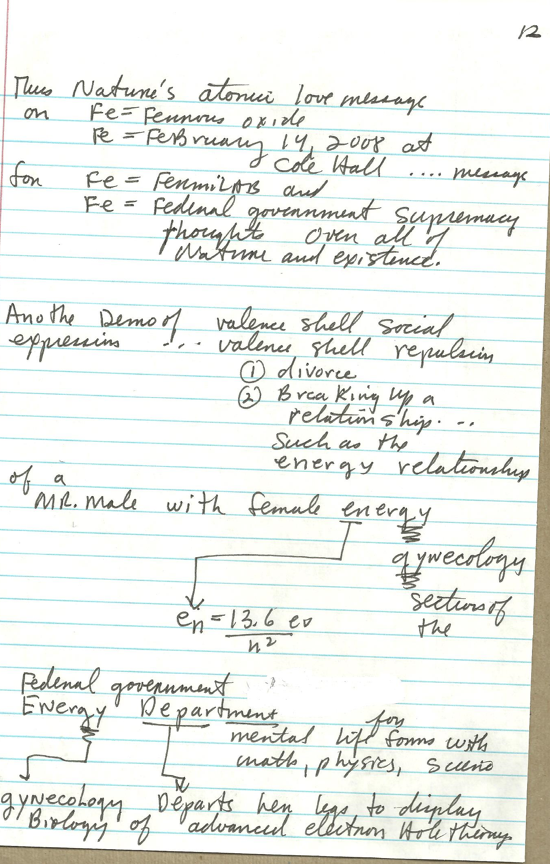 12
Thus Nature's atomic love message
on Fe = Ferrous oxide
Fe = FeBruary 14, 2008 at
Cole Hall .... message
for Fe = FermiLAB and
Fe = Federal government supremacy
thoughts over all of
Nature and existence.
Anothe Demo of valence shell social
expression ... valence shell repulsion
① divorce
② Breaking up a
relationship...
Such as the
energy relationship
of a
MR. Male with female energy
gynecology
section of
the
en = 13.6 ev
n²
Federal government
Energy Department for
mental life forms with
math, physics,
gynecology Departs her legs to display
Biology of advanced electron Hole theory